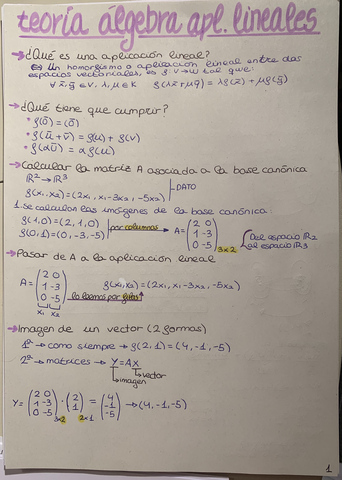 teoría álgebra apl. lineales
→ ¿Qué es una aplicación lineal?
Es un homorfismo o aplicación lineal entre dos
espacios vectoriales, es f: V→W tal que:
∀ x̄, ȳ ∈ V, λ, μ ∈ K f(λx̄ + μȳ) = λf(x̄) + μf(ȳ)
→ ¿Qué tiene que cumplir?
* f(0̄) = (0̄)
* f(ū + v̄) = f(u) + f(v)
* f(αū) = α f(u)
→ Calcular la matriz A asociada a la base canónica
ℝ² → ℝ³
f(x₁, x₂) = (2x₁, x₁-3x₂, -5x₂) DATO
1. se calculan las imágenes de la base canónica:
f(1,0) = (2,1,0)
f(0,1) = (0,-3,-5)
por columnas → A = (2 0
1 -3
0 -5) 3x2
Del espacio ℝ²
al espacio ℝ³
→ Pasar de A a la aplicación lineal
A = (2 0
1 -3
0 -5)
x₁ x₂
f(x₁, x₂) = (2x₁, x₁-3x₂, -5x₂)
la leemos por filas ↑
→ Imagen de un vector (2 formas)
1ª → como siempre → f(2,1) = (4,-1,-5)
2ª → matrices → Y = AX
vector
imagen
Y = (2 0
1 -3
0 -5) 3x2 · (2
1) 2x1 = (4
-1
-5) → (4,-1,-5)
1